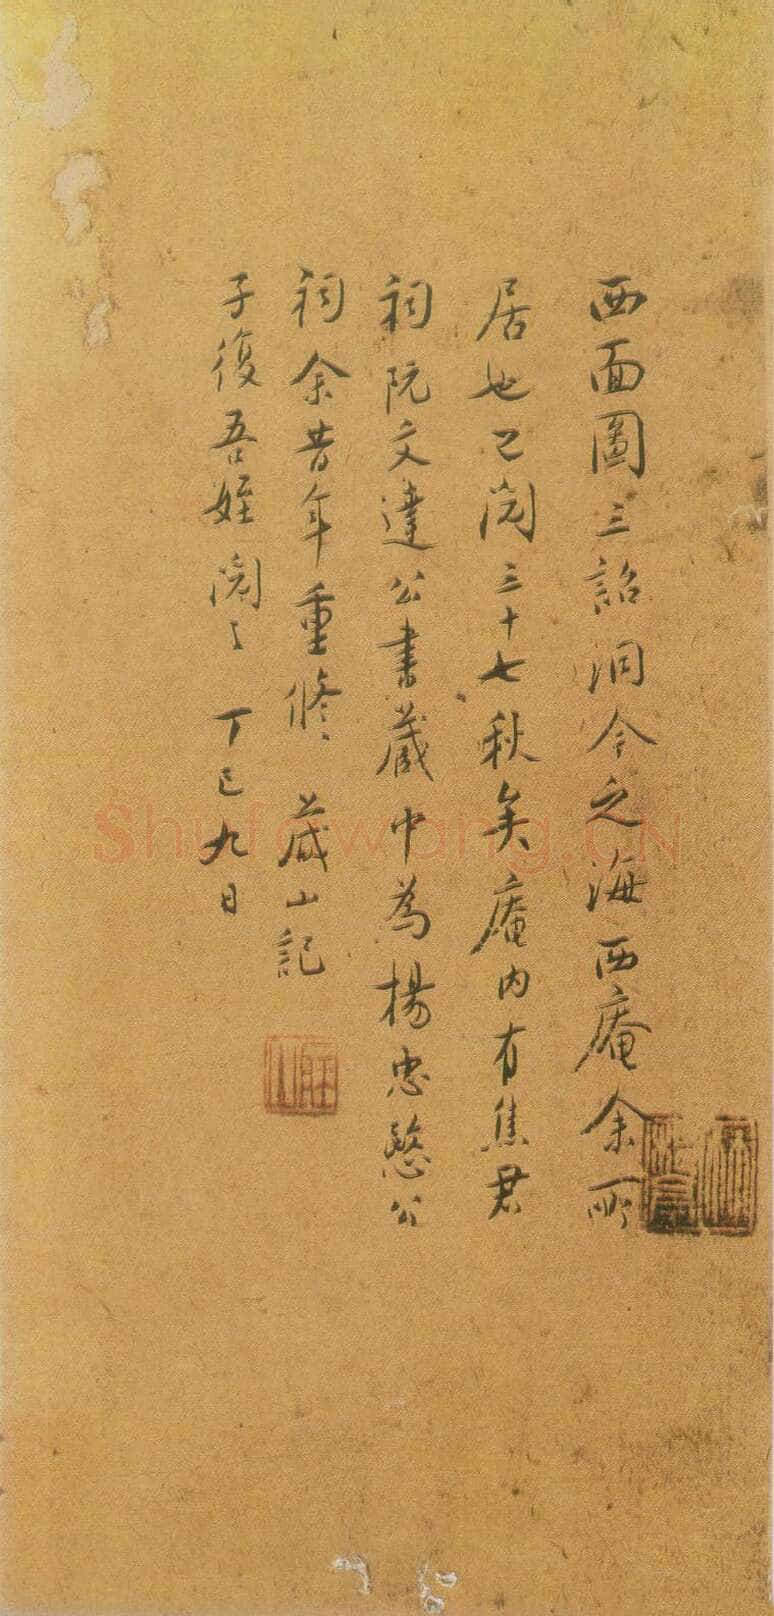 西面圖三詔洞今之海西庵余所
居也已閱三十七秋矣庵内有焦君
祠阮文達公書藏中為楊忠愍公
祠余昔年重修〻藏山記
子復吾姪閱〻丁巳九日
Shufawang.CN